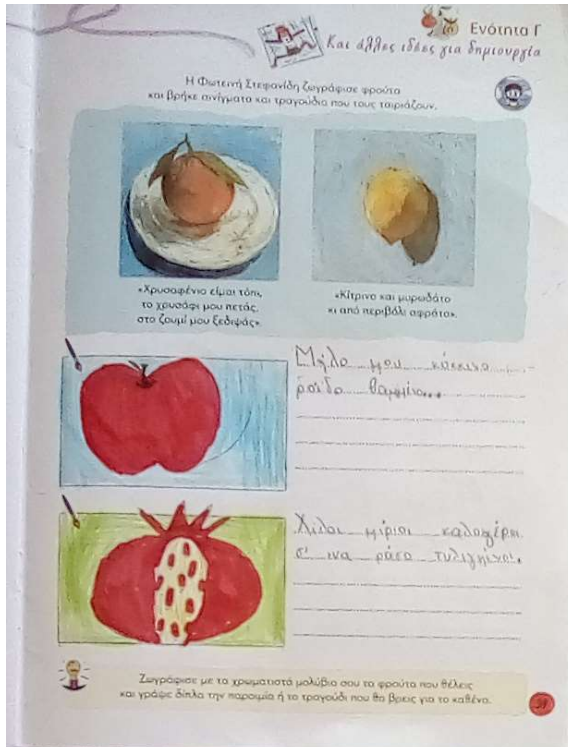 Ενότητα Γ
Και άλλες ιδέες για δημιουργία
Η Φωτεινή Στεφανίδη ζωγράφισε φρούτα
και βρήκε αινίγματα και τραγούδια που τους ταιριάζουν.
«Χρυσαφένιο είμαι τόπι,
το χρυσάφι μου πετάς,
στο ζουμί μου ξεδιψάς».
«Κίτρινο και μυρωδάτο
κι από περιβόλι αφράτο».
Μήλο μου κόκκινο
ρόιδο βαμμένο...
Χίλιοι μύριοι καλογέροι
σ' ένα ράσο τυλιγμένοι.
Ζωγράφισε με τα χρωματιστά μολύβια σου τα φρούτα που θέλεις
και γράψε δίπλα την παροιμία ή το τραγούδι που θα βρεις για το καθένα.